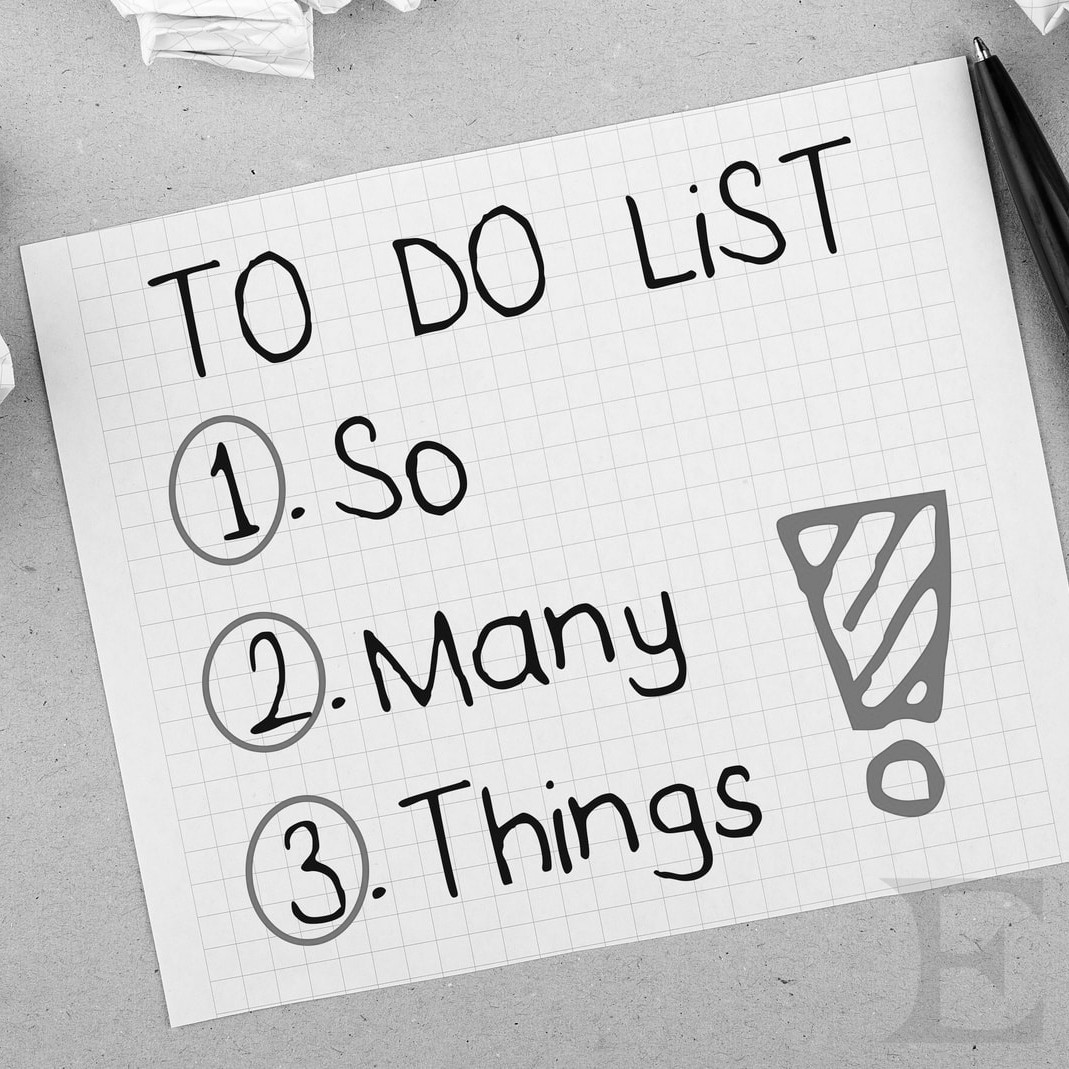 TO DO LiST
1. So
2. Many
3. Things
!
E